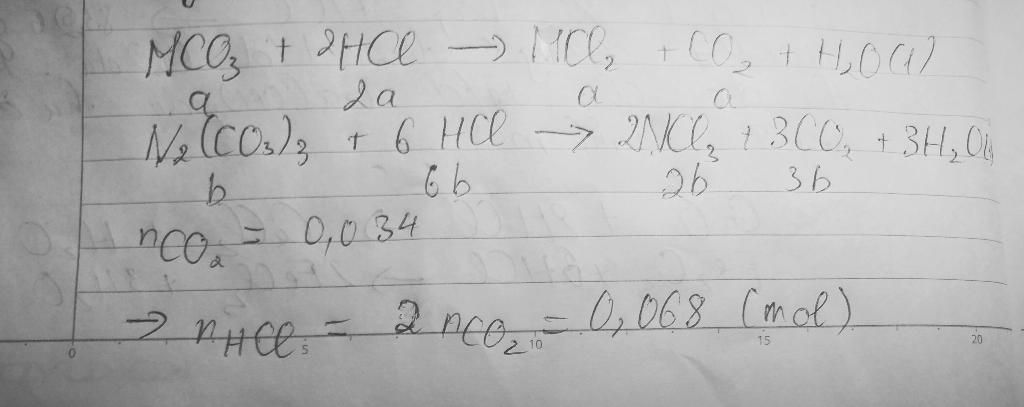 MCO₃ + 2HCl → MCl₂ + CO₂ + H₂O (1)
a 2a a a
N₂(CO₃)₃ + 6 HCl → 2NCl₃ + 3CO₂ + 3H₂O
b 6b 2b 3b
nCO₂ = 0,034
→ nHCl = 2 nCO₂ = 0,068 (mol)
0 5 10 15 20